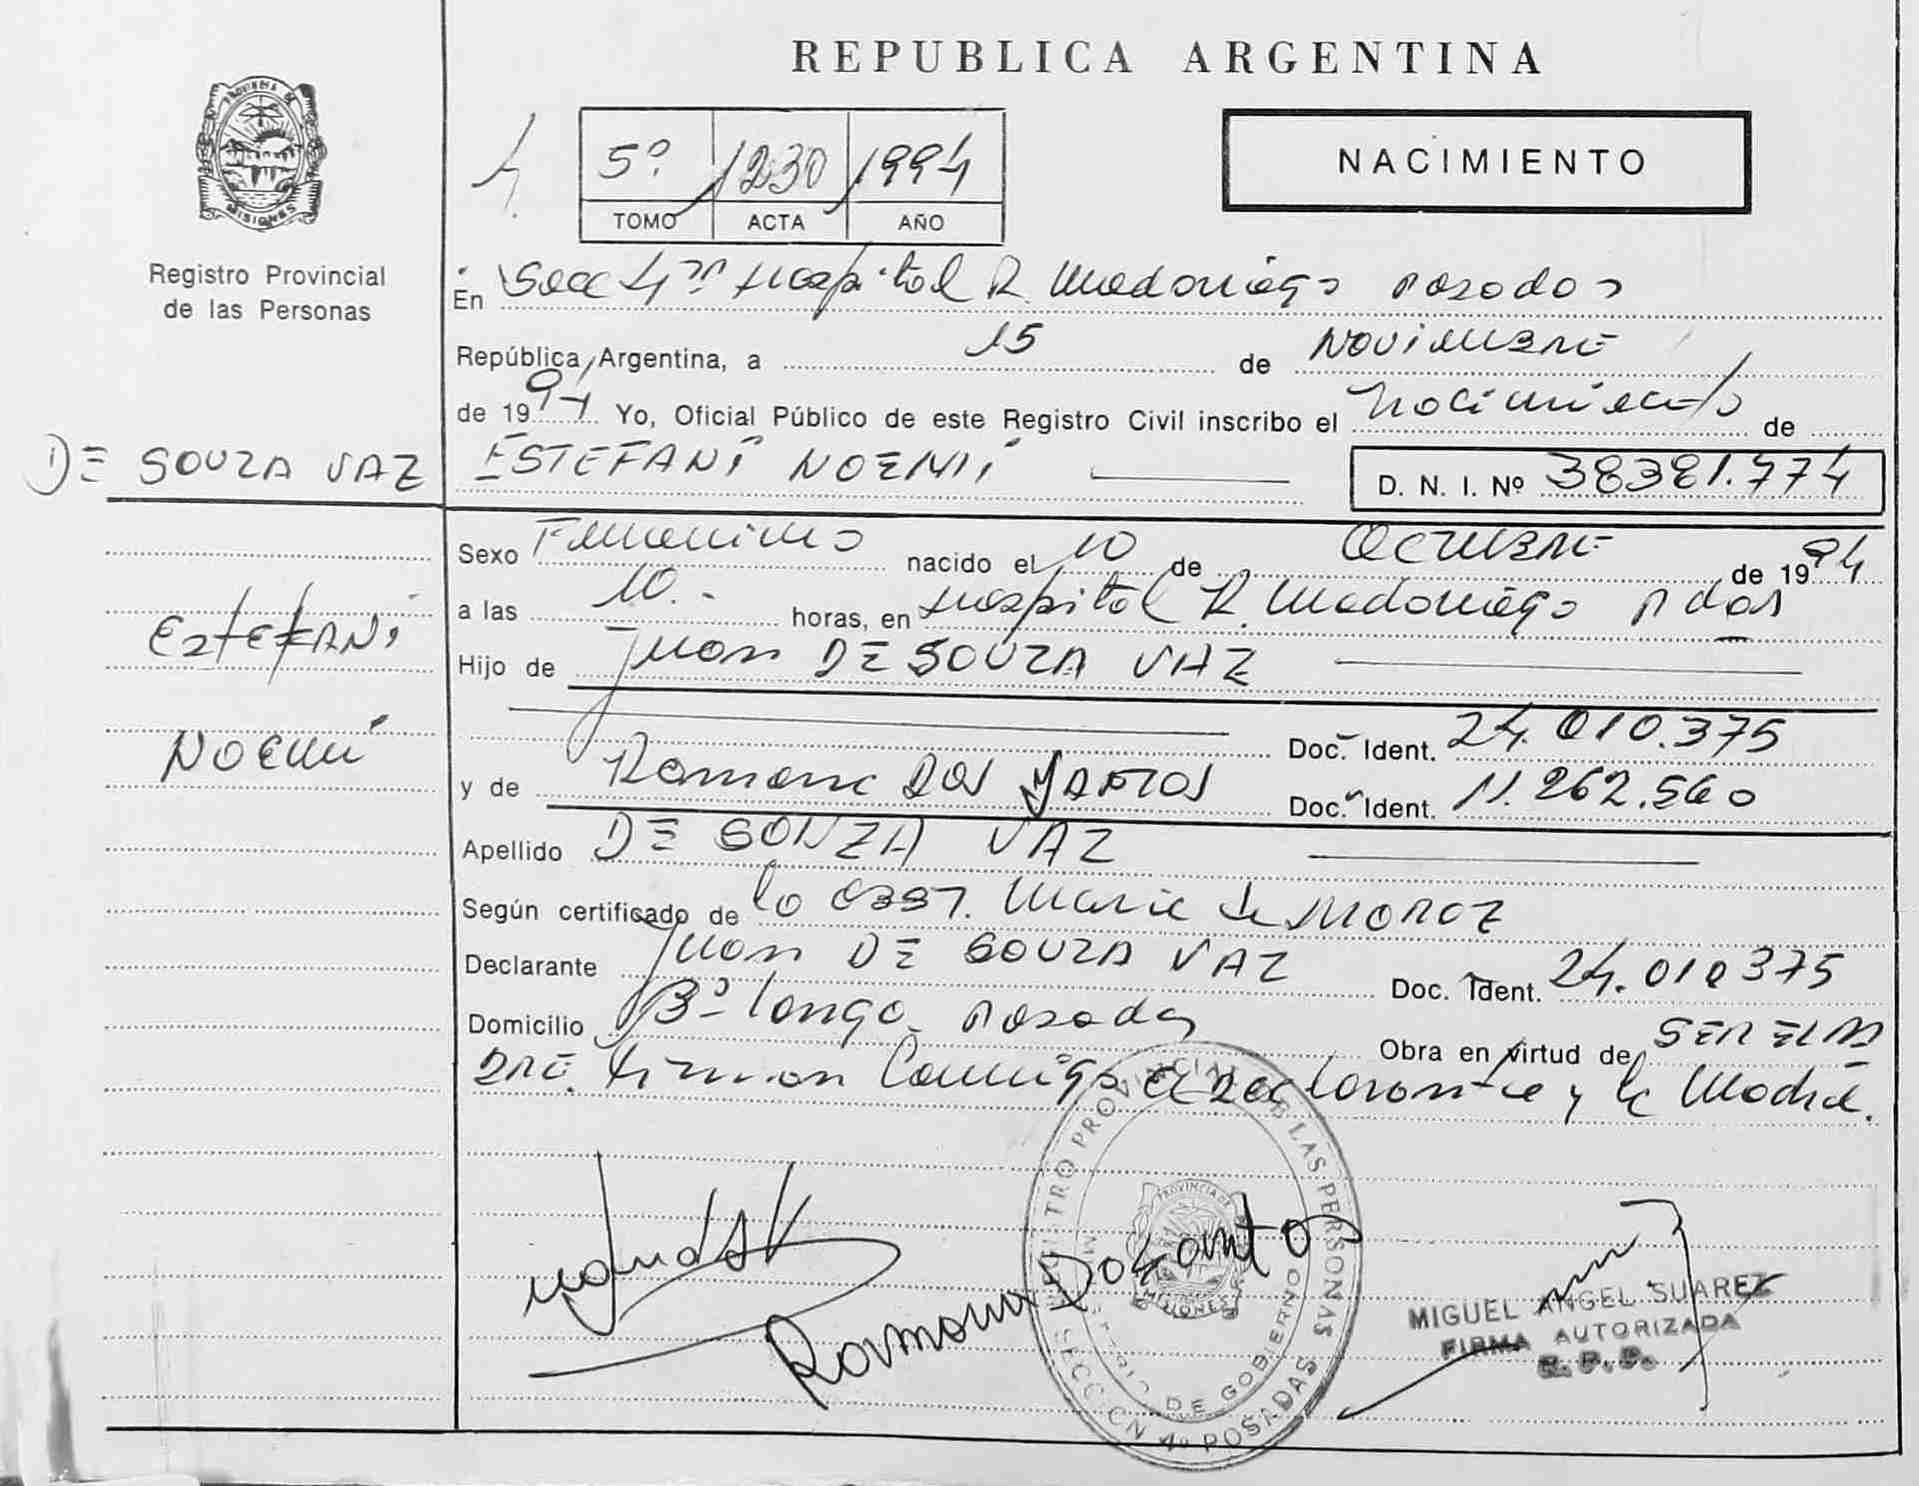 REPUBLICA ARGENTINA
PROVINCIA DE
MISIONES
Registro Provincial
de las Personas
4
5º 1230 1994
TOMO ACTA AÑO
NACIMIENTO
En Secc 4ta Hospital R. Madariaga Posadas
República Argentina, a 15 de NOVIEMBRE
de 1994 Yo, Oficial Público de este Registro Civil inscribo el Nacimiento de
DE SOUZA VAZ ESTEFANÍ NOEMÍ D. N. I. Nº 38381.774
Sexo Femenino nacido el 10 de OCTUBRE de 1994
a las 10.- horas, en Hospital R. Madariaga Pdas
ESTEFANÍ
Hijo de Juan DE SOUZA VAZ
NOEMÍ
Doc. Ident. 24.010.375
y de Ramona DOS SANTOS Doc. Ident. 11.262.560
Apellido DE SOUZA VAZ
Según certificado de la Obst. Maria de MOROZ
Declarante Juan DE SOUZA VAZ Doc. Ident. 24.010375
Domicilio Bº Longo Posadas Obra en virtud de SER EL PA
DRE. Firman Conmigo el Declarante y la Madre.
REGISTRO PROVINCIAL DE LAS PERSONAS
MINISTERIO DE GOBIERNO
PROVINCIA DE
MISIONES
SECCION 4º POSADAS
Ramona Do Santos
MIGUEL ANGEL SUAREZ
FIRMA AUTORIZADA
R. P. P.